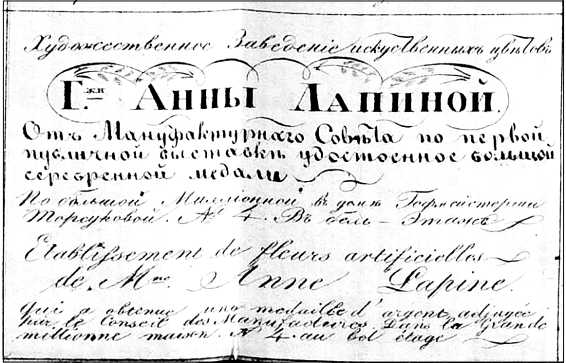 Художественное Заведенiе искуственныхъ цвѣтовъ
Г.жи Анны Лапиной.
Отъ Мануфактурнаго Совѣта по первой
публичной выставкѣ удостоенное большой
серебренной медали
По большой Миллiонной въ домѣ Гофмейстерши
Торсуковой. № 4. Въ бель-Этажѣ
Etablissement de fleurs artificielles
de Mme Anne Lapine.
Qui a obtenue une medaille d'argent adjugée
par le Conseil des Manufactures. Dans la Grande
millionne maison № 4 au bel étage